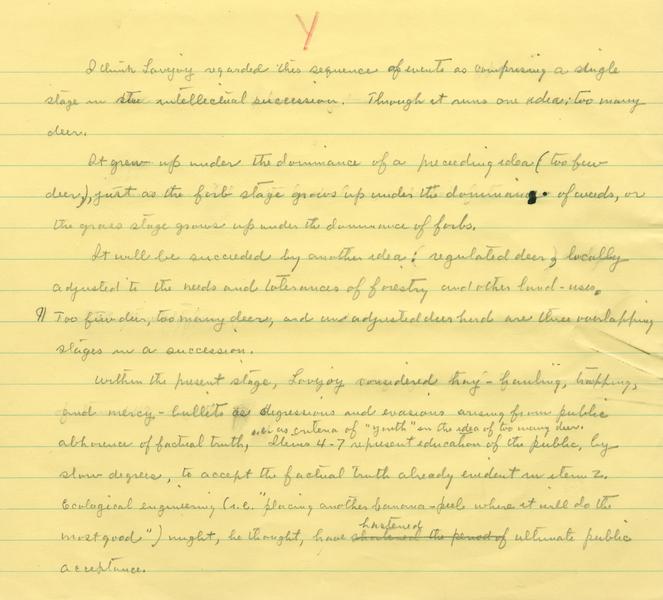 Y
I think Lovejoy regarded this sequence of events as comprising a single
stage in the intellectual succession. Though it runs one idea: too many
deer.
It grew up under the dominance of a preceeding idea (too few
deer), just as the forb stage grows up under the dominance of weeds, or
the grass stage grows up under the dominance of forbs.
It will be succeeded by another idea: regulated deer, locally
adjusted to the needs and tolerances of forestry and other land-uses.
¶ Too few deer, too many deer, and an adjusted deer herd are three overlapping
stages in a succession.
Within the present stage, Lovejoy considered hay-hauling, trapping,
and mercy-bullets as digressions and evasions arising from public
or as criteria of "youth" in the idea of too many deer.
abhorence of factual truth, Items 4-7 represent education of the public, by
slow degrees, to accept the factual truth already evident in item 2.
Ecological engineering (i.e. "placing another banana-peel where it will do the
hastened
most good") might, he thought, have shortened the period of ultimate public
acceptance.